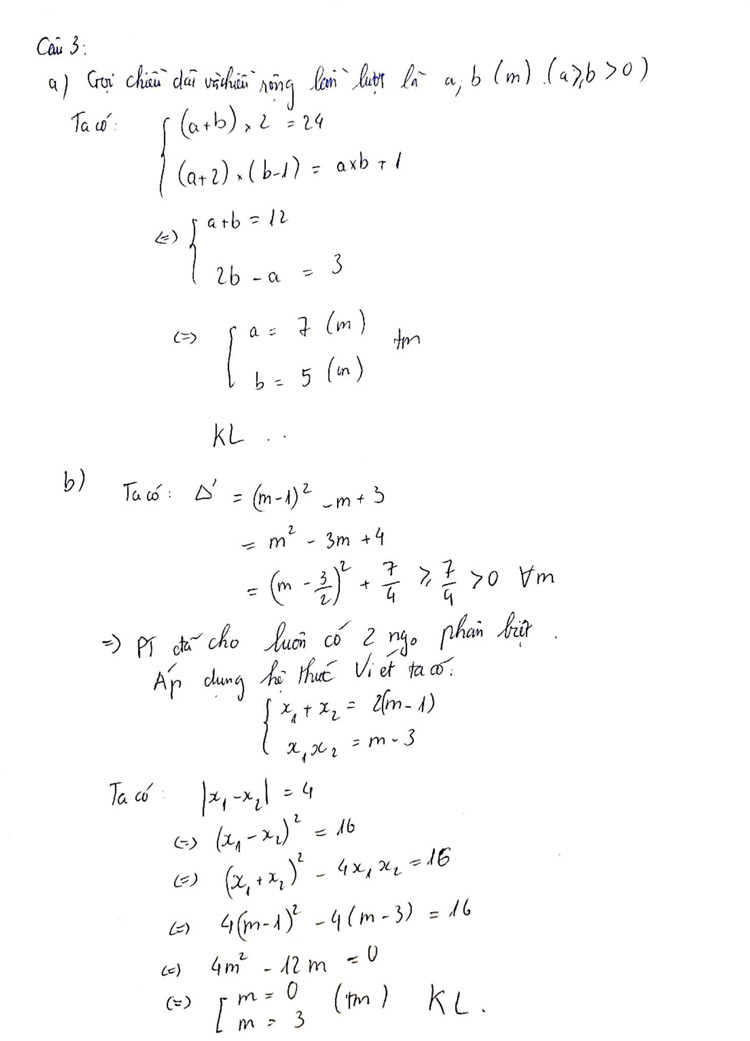 Câu 3:
a) Gọi chiều dài và chiều rộng lần lượt là a, b (m) (a ≥ b > 0)
Ta có: { (a+b) × 2 = 24
(a+2) × (b-1) = a×b + 1
(=) { a+b = 12
2b - a = 3
(=) { a = 7 (m) tm
b = 5 (m)
KL ..
b) Ta có: Δ' = (m-1)² - m + 3
= m² - 3m + 4
= (m - 3/2)² + 7/4 ≥ 7/4 > 0 ∀m
=) PT đã cho luôn có 2 ngo phân biệt.
Áp dụng hệ thức Viét ta có:
{ x₁ + x₂ = 2(m-1)
x₁x₂ = m - 3
Ta có: |x₁-x₂| = 4
(=) (x₁-x₂)² = 16
(=) (x₁+x₂)² - 4x₁x₂ = 16
(=) 4(m-1)² - 4(m-3) = 16
(=) 4m² - 12m = 0
(=) [ m = 0 (tm) KL.
m = 3